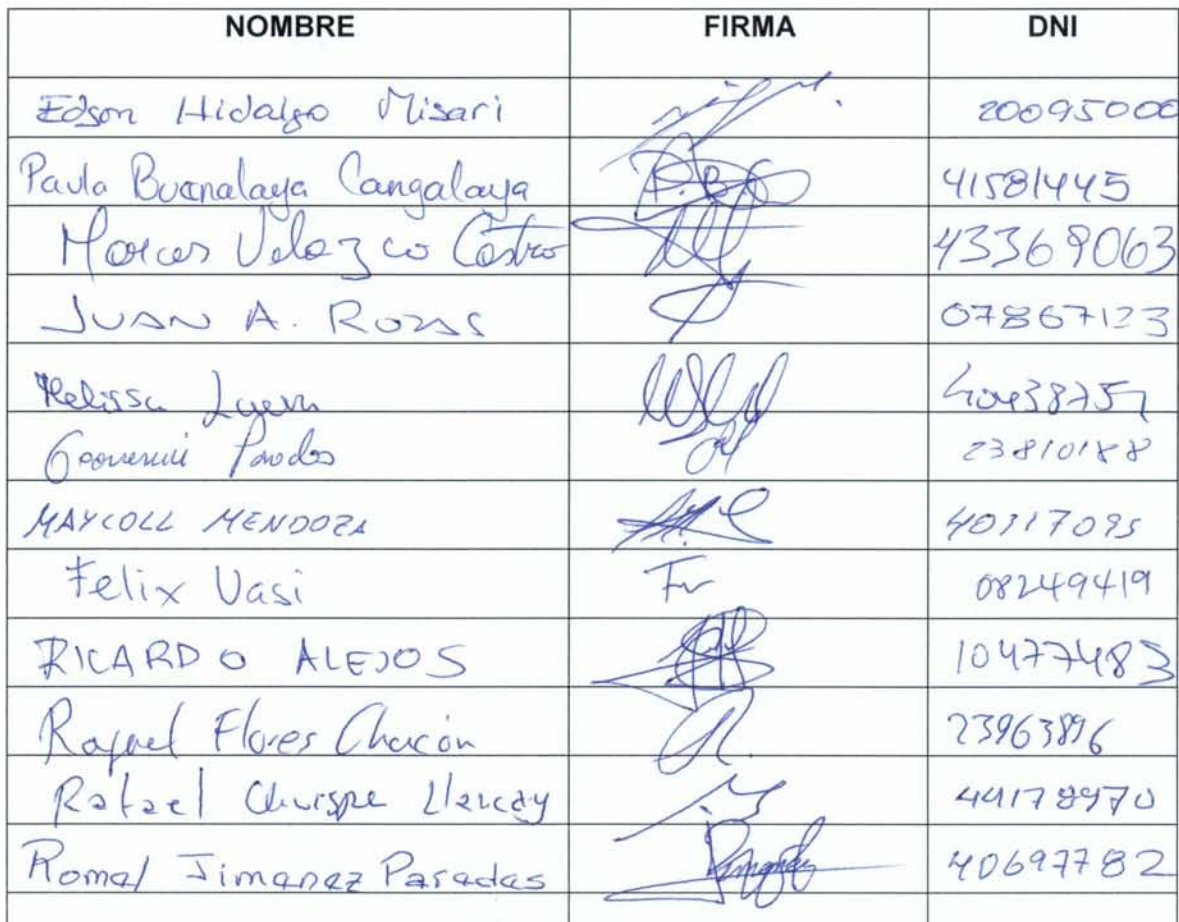 NOMBRE FIRMA DNI
Edson Hidalgo Misari 20095000
Paula Buenalaya Cangalaya P.B.C 41581445
Marcos Velazco Castro 43369063
JUAN A. ROZAS 07867123
Melissa
23810188
MAYCOLL MENDOZA 40317095
Felix Vasi Fv 08249419
RICARDO ALEJOS 10477483
Raquel Flores Chacón 23963896
Rafael Quispe Llancay 44178970
Romel Jimenez Paredes 40697782